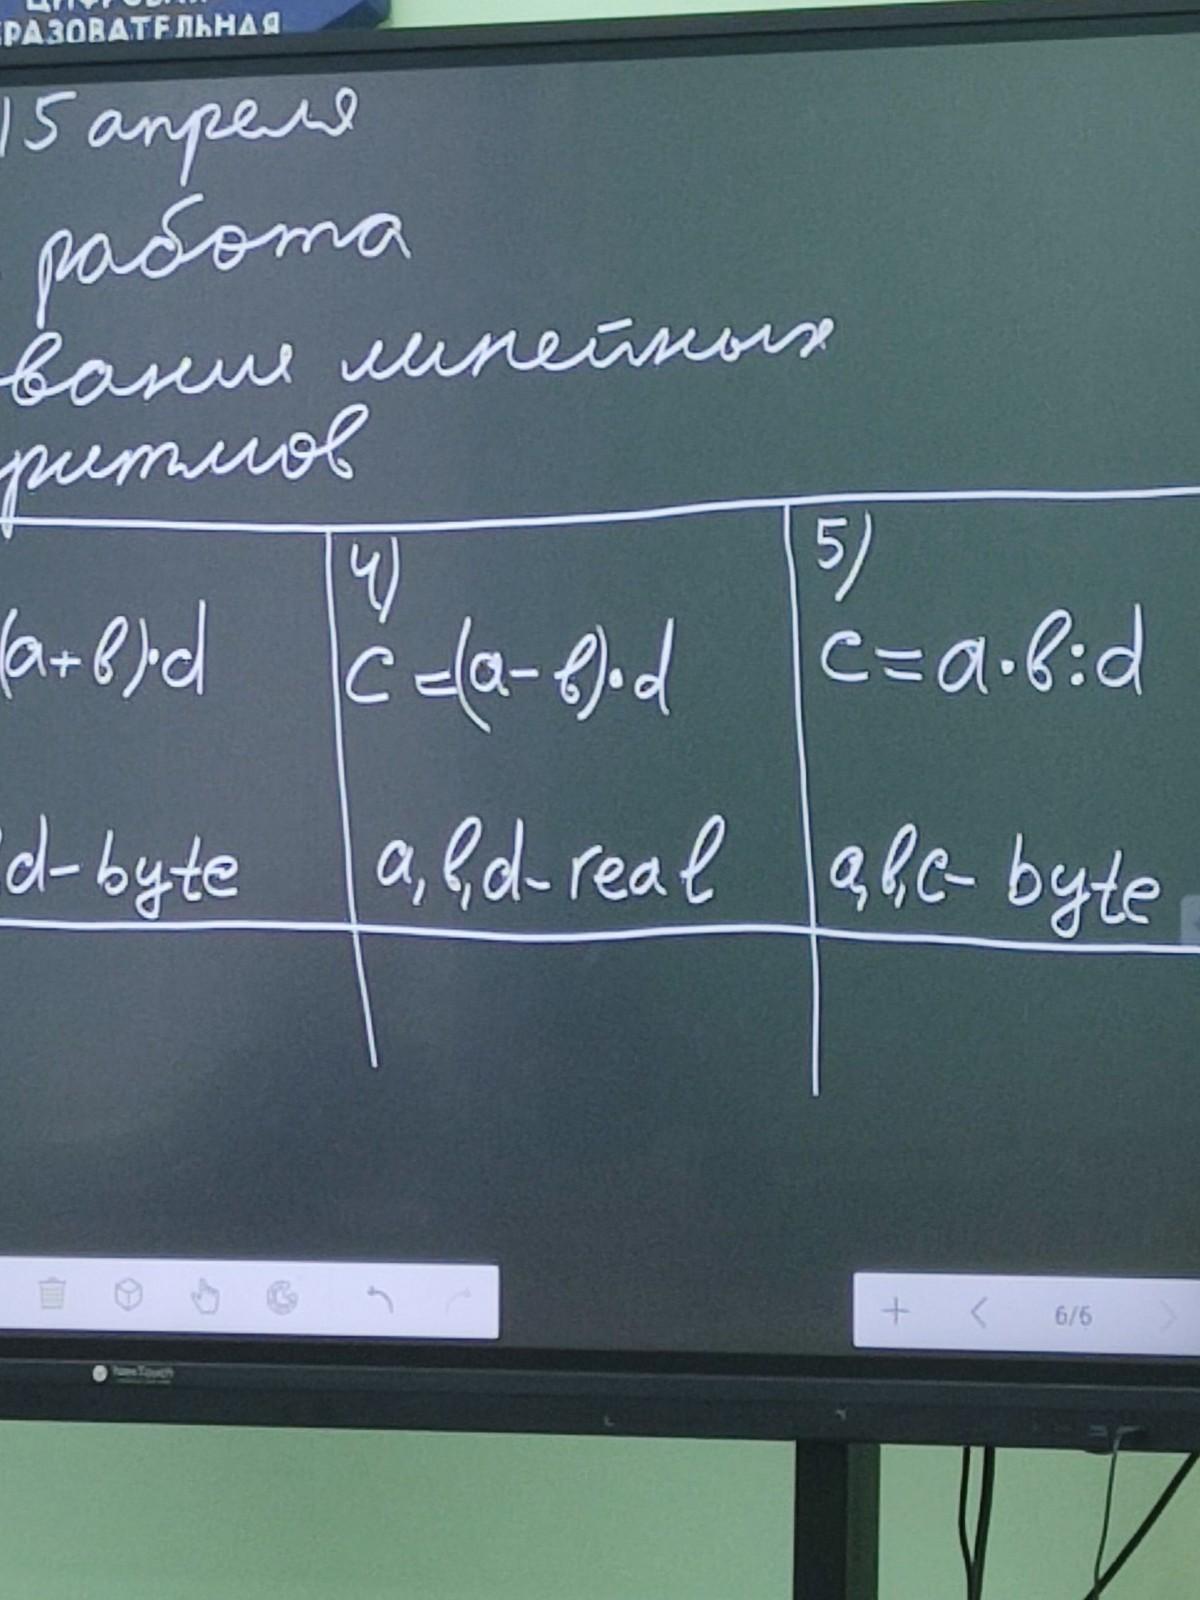 ЦИФРОВАЯ
РАЗОВАТЕЛЬНАЯ
15 апреля
работа
вание линейных
ритмов
(a+b)·d
d-byte
4)
c=(a-b)·d
a,b,d-real
5)
c=a·b:d
a,b,c- byte
6/6
NewTouch